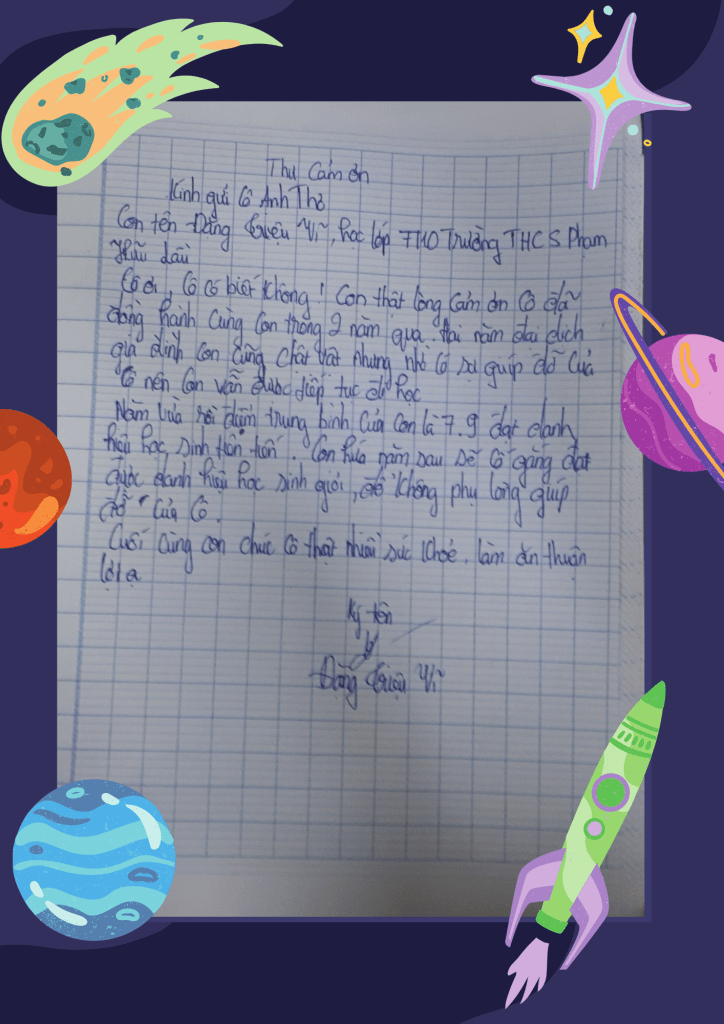 Thư Cảm ơn
Kính gửi Cô Anh Thơ
Con tên Đặng Triệu Vĩ, học lớp 7T10 Trường THCS Phạm
Hữu Lầu
Cô ơi, Cô có biết không! Con thật lòng cảm ơn Cô đã
đồng hành cùng con trong 2 năm qua. Hai năm đại dịch
gia đình con cũng chật vật nhưng nhờ có sự giúp đỡ của
Cô nên con vẫn được tiếp tục đi học
Năm vừa rồi điểm trung bình của con là 7.9 đạt danh
hiệu học sinh tiên tiến. Con hứa năm sau sẽ cố gắng đạt
được danh hiệu học sinh giỏi, để không phụ lòng giúp
đỡ của Cô.
Cuối cùng con chúc cô thật nhiều sức khỏe, làm ăn thuận
lợi ạ
Ký tên
Đặng Triệu Vĩ